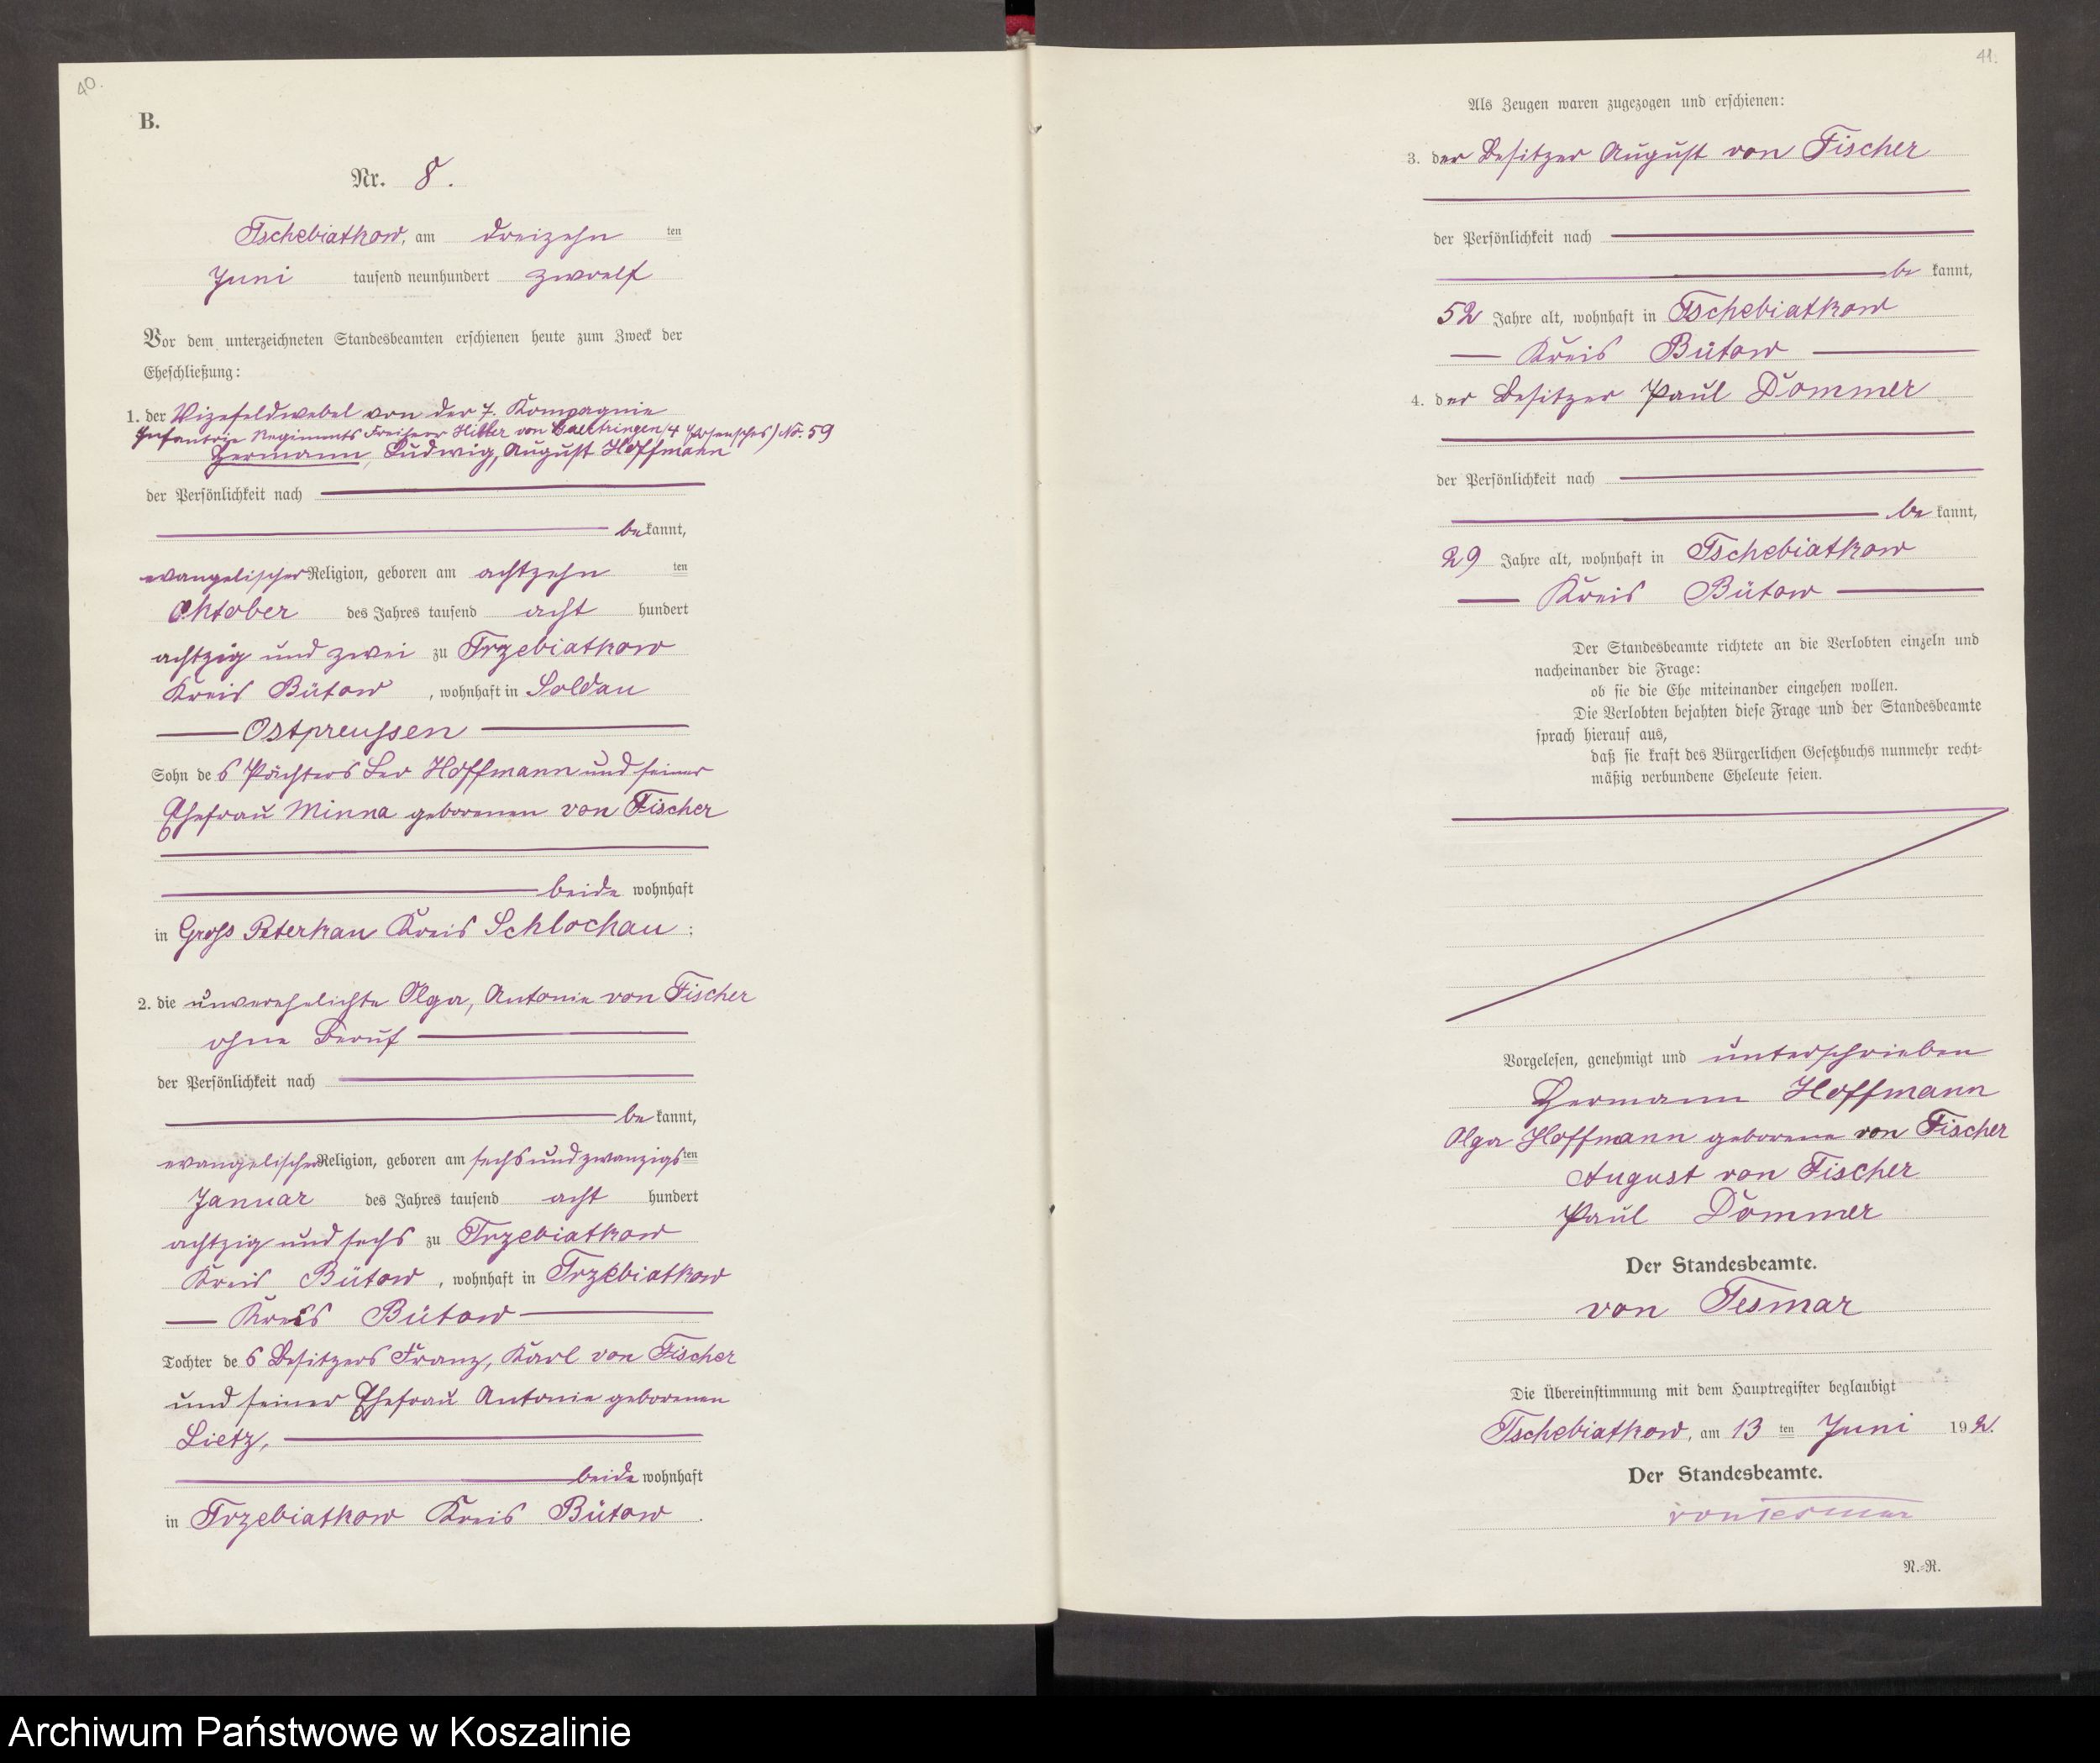 40.
B.
Nr. 8.
Tschebiatkow, am dreizehn ten
Juni tausend neunhundert zwoelf
Vor dem unterzeichneten Standesbeamten erschienen heute zum Zweck der
Eheschließung:
1. der Vizefeldwebel von der 7. Kompagnie
Infanterie Regiments Freiherr Hiller von Gaertringen (4 Posensches) No. 59
Hermann, Ludwig, August Hoffmann
der Persönlichkeit nach
bekannt,
evangelischer Religion, geboren am achtzehn ten
Oktober des Jahres tausend acht hundert
achtzig und zwei zu Trzebiatkow
Kreis Bütow, wohnhaft in Soldau
Ostpreussen
Sohn des Pächters Leo Hoffmann und seiner
Ehefrau Minna geborenen von Fischer
beide wohnhaft
in Gross Peterkau Kreis Schlochau;
2. die unverehelichte Olga, Antonie von Fischer
ohne Beruf
der Persönlichkeit nach
bekannt,
evangelischer Religion, geboren am sechsundzwanzigsten
Januar des Jahres tausend acht hundert
achtzig und sechs zu Trzebiatkow
Kreis Bütow, wohnhaft in Trzebiatkow
Kreis Bütow
Tochter des Besitzers Franz, Karl von Fischer
und seiner Ehefrau Antonie geborenen
Lietz,
beide wohnhaft
in Trzebiatkow Kreis Bütow.
41.
Als Zeugen waren zugezogen und erschienen:
3. der Besitzer August von Fischer
der Persönlichkeit nach
bekannt,
52 Jahre alt, wohnhaft in Tschebiatkow
Kreis Bütow
4. der Besitzer Paul Dommer
der Persönlichkeit nach
bekannt,
29 Jahre alt, wohnhaft in Tschebiatkow
Kreis Bütow
Der Standesbeamte richtete an die Verlobten einzeln und
nacheinander die Frage:
ob sie die Ehe miteinander eingehen wollen.
Die Verlobten bejahten diese Frage und der Standesbeamte
sprach hierauf aus,
daß sie kraft des Bürgerlichen Gesetzbuchs nunmehr recht-
mäßig verbundene Eheleute seien.
Vorgelesen, genehmigt und unterschrieben
Hermann Hoffmann
Olga Hoffmann geborene von Fischer
August von Fischer
Paul Dommer
Der Standesbeamte.
von Tesmar
Die Übereinstimmung mit dem Hauptregister beglaubigt
Tschebiatkow, am 13 ten Juni 192.
Der Standesbeamte.
von Tesmar
N.-R.
Archiwum Państwowe w Koszalinie